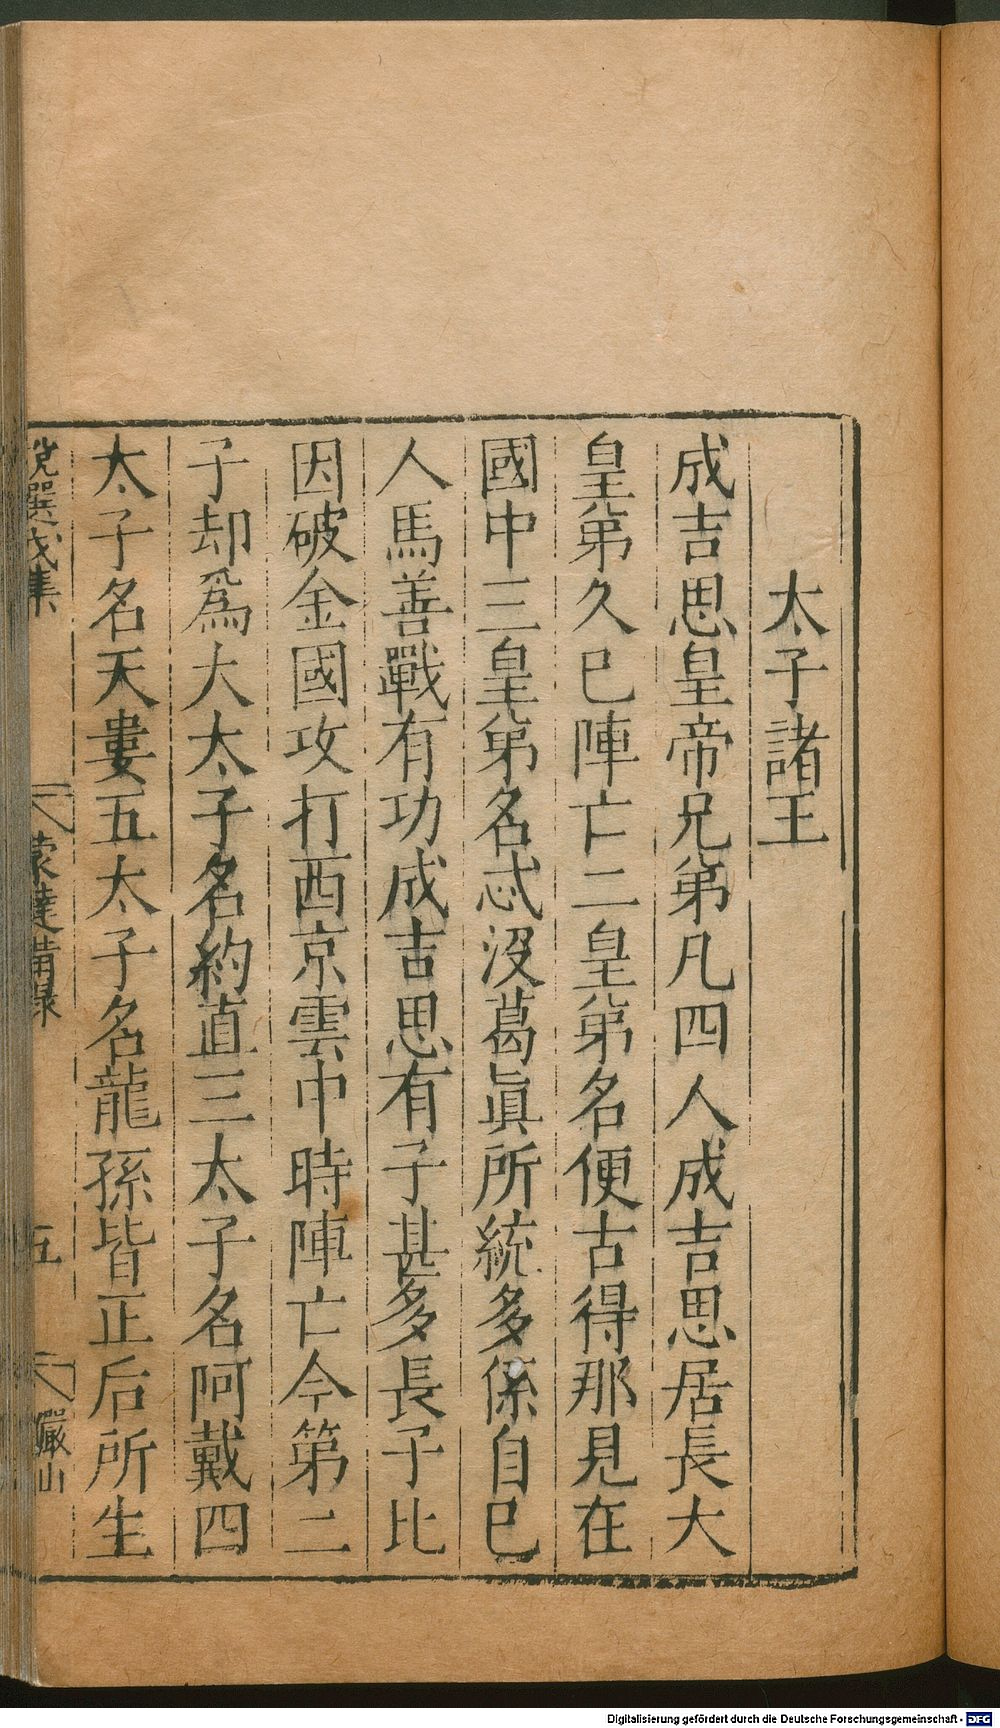 太子諸王
成吉思皇帝兄第凡四人成吉思居長大
皇第久已陣亡二皇第名便古得那見在
國中三皇第名忒沒葛真所統多係自已
人馬善戰有功成吉思有子甚多長子比
因破金國攻打西京雲中時陣亡今第二
子却為大太子名約直三太子名阿戴四
太子名天婁五太子名龍孫皆正后所生
說選戊集
蒙韃備錄
五
儼山
Digitalisierung gefördert durch die Deutsche Forschungsgemeinschaft - DFG